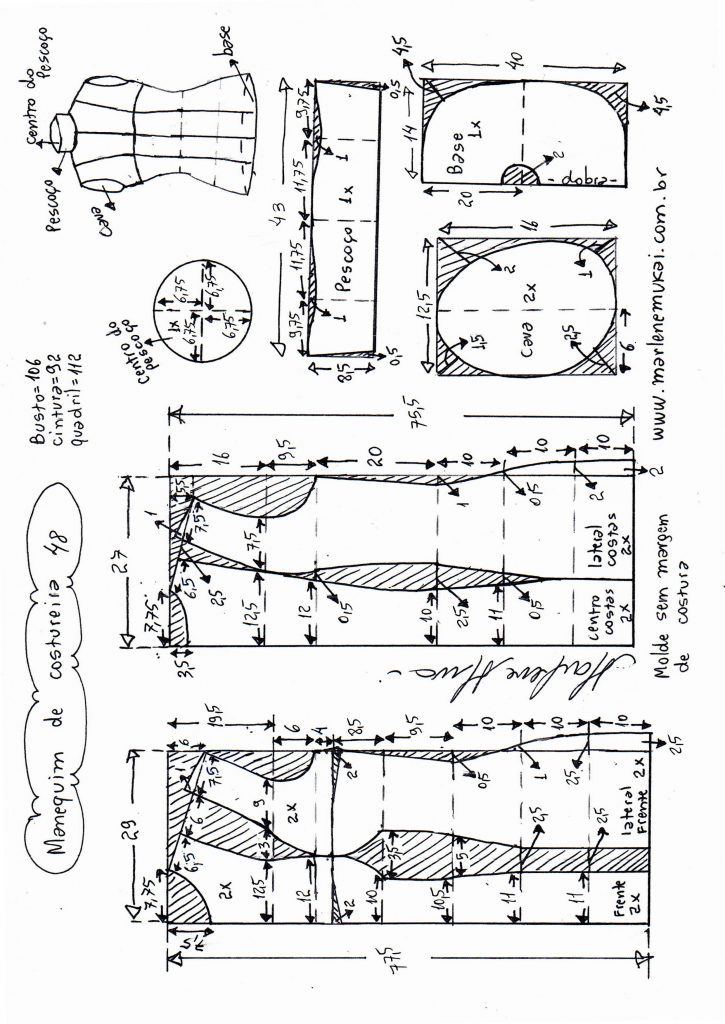 Manequim de costureira 48
Busto=106
cintura=92
quadril=112
centro do
Pescoço
Pescoço
cava
base
Centro do
pescoço
1x
6,75
6,75
6,75
6,75
43
9,75
11,75
11,75
9,75
Pescoço 1x
1
1
8,5
0,5
0,5
40
14
4,5
4,5
Base
1x
2
20
-dobra-
12,5
16
Cava 2x
2
1
1,5
2,5
6
27
7,75
3,5
6,5
2,5
1
5,5
7,5
7,5
16
9,5
20
10
10
10
75,5
12,5
12
0,5
10
2,5
11
0,5
1
0,5
2
2
centro
costas
2x
lateral
costas
2x
Molde sem margem
de costura
www.marlenemukai.com.br
29
7,75
7,5
6,5
6
7,5
6
19,5
6
4
8,5
9,5
10
10
10
77,5
2x
2x
12,5
3
9
12
2
2
10
3,5
10,5
5
0,5
11
2,5
1
11
2,5
2,5
2,5
Frente
2x
lateral
Frente 2x